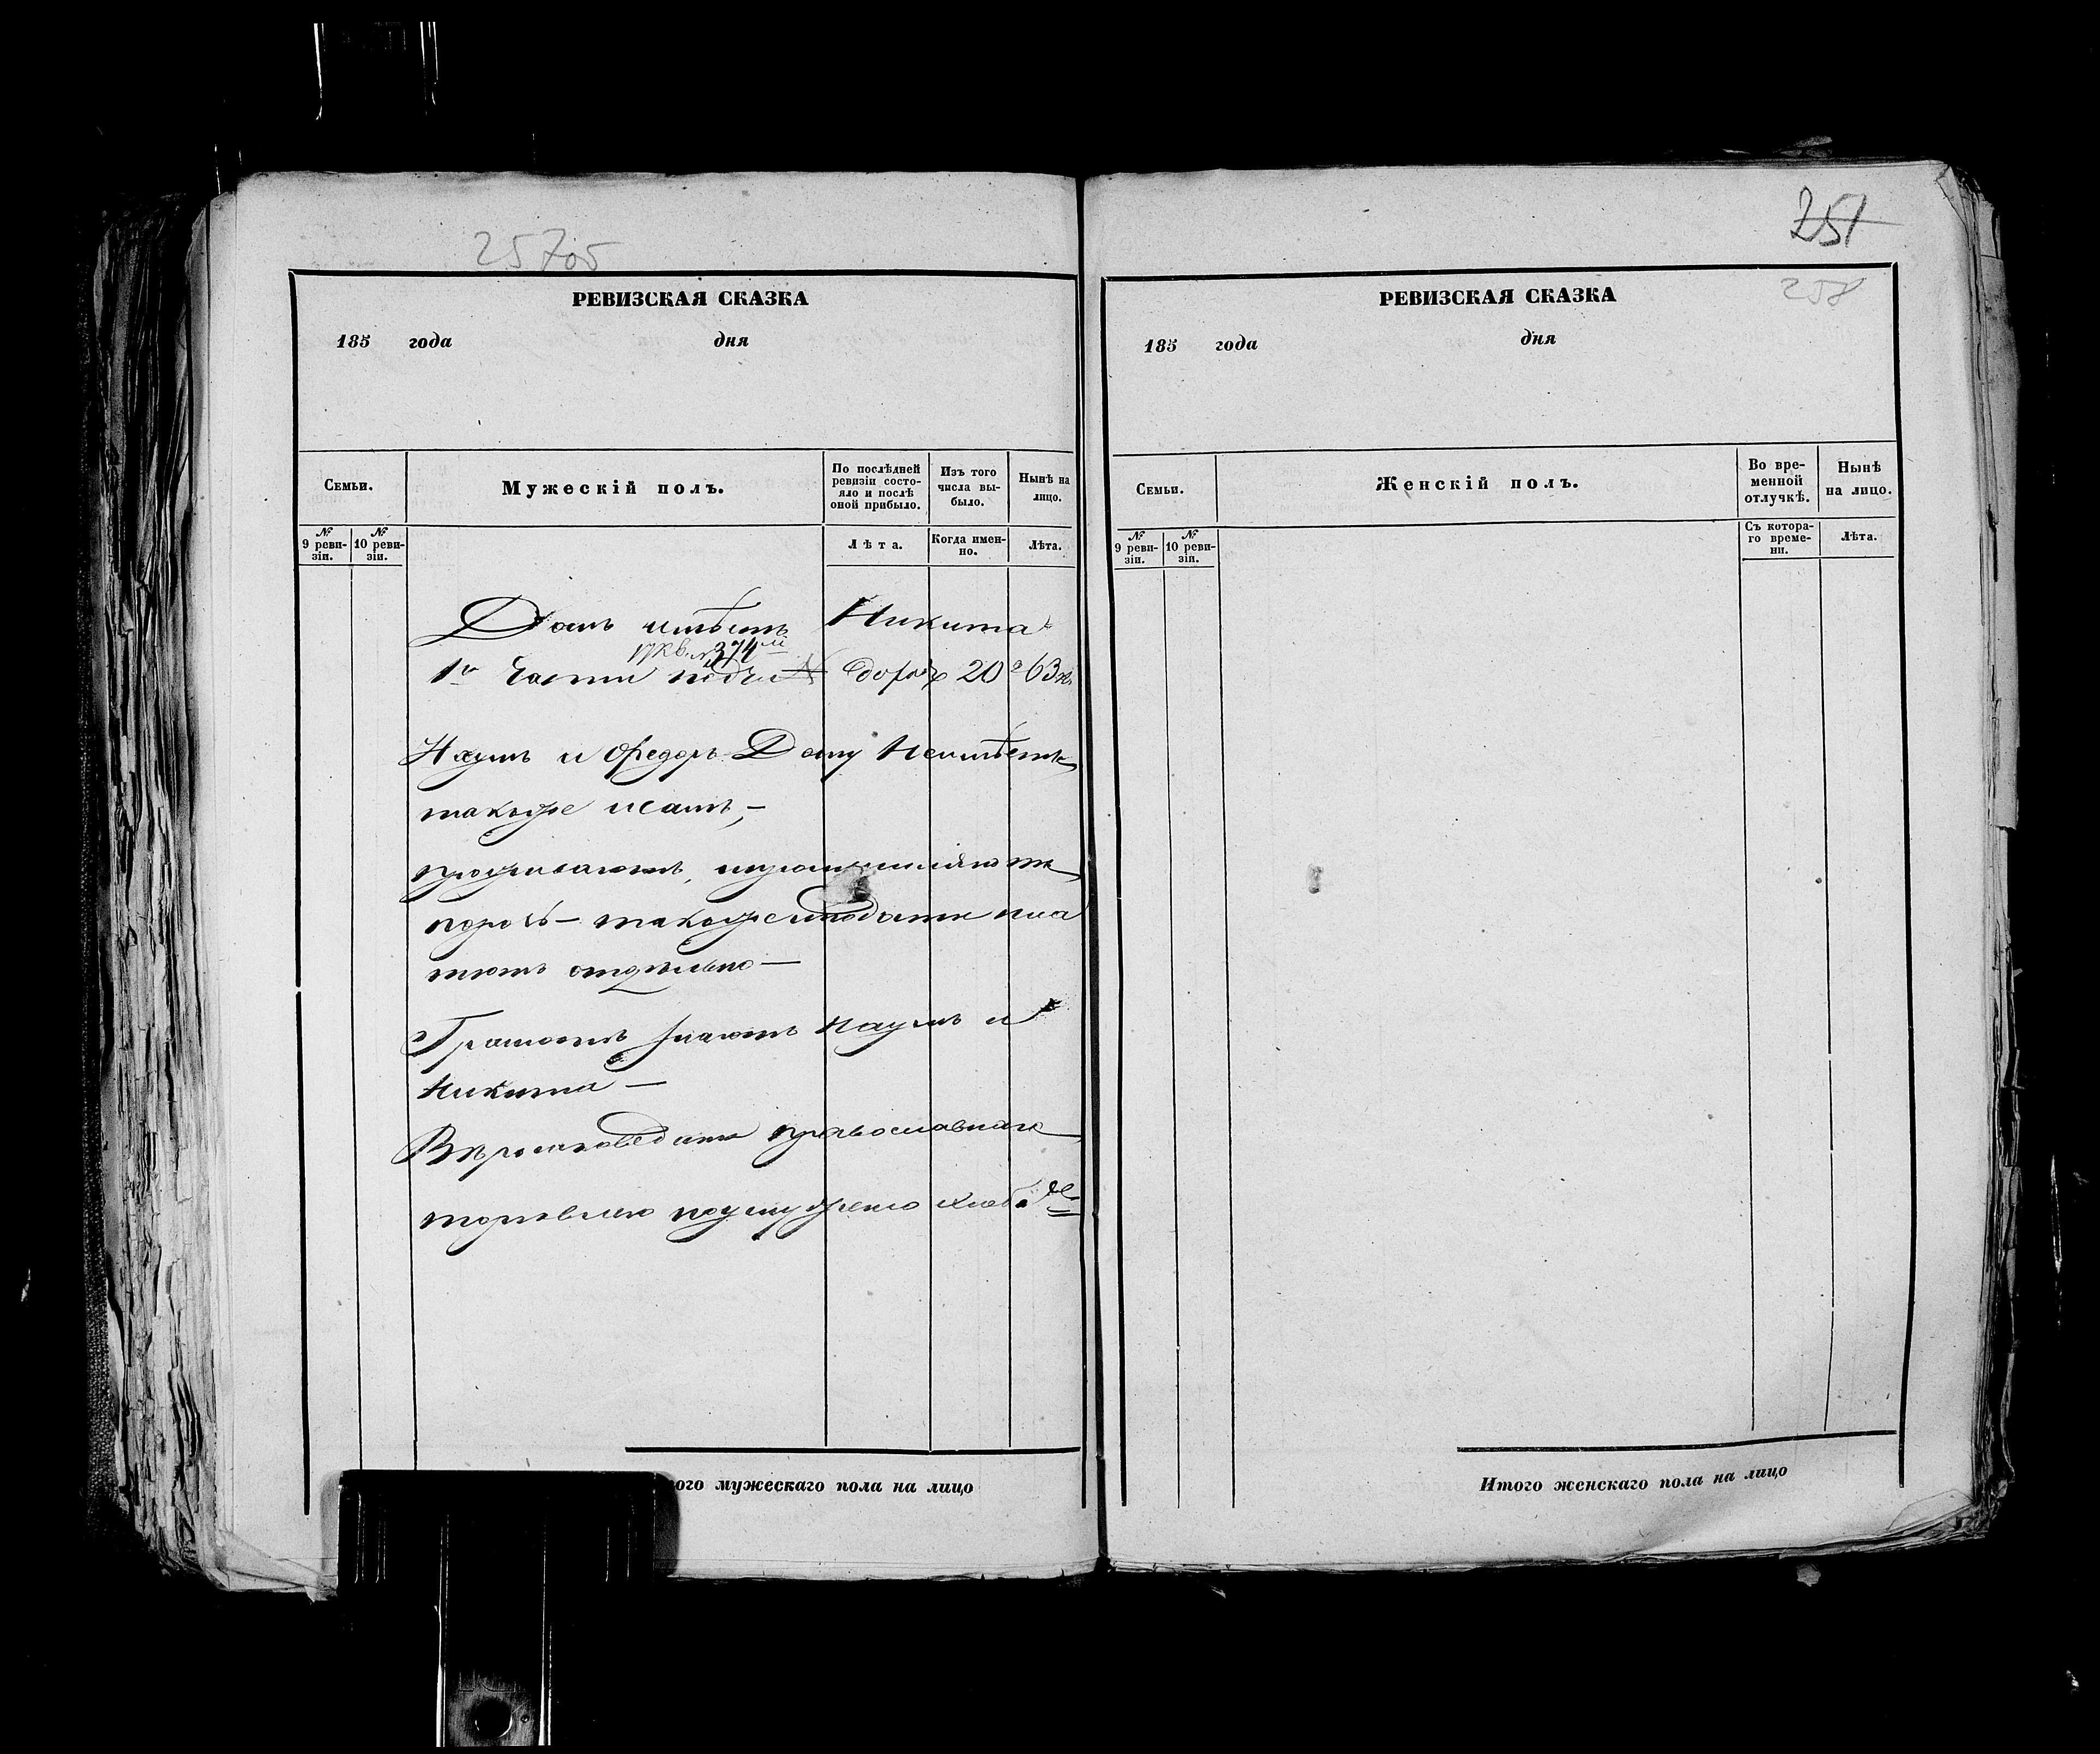 257об
РЕВИЗСКАЯ СКАЗКА
185 года дня
Семьи.
Мужескій полъ.
По послѣдней ревизіи состояло и послѣ оной прибыло.
Изъ того числа выбыло.
Нынѣ на лицо.
№ 9 ревизіи.
№ 10 ревизіи.
Лѣта.
Когда именно.
Лѣта.
Домъ имѣетъ Никита
17 кв. 374
1й Части подъ № 20 63 к
Наумъ и Федоръ Дому Неимѣетъ
такъже
проживаютъ,
порозь – такъже подати пла
тютъ отдѣльно –
Грамотѣ знаютъ Наумъ и
Никита –
Вѣроисповеданія православнаго
торговлю
251
258
РЕВИЗСКАЯ СКАЗКА
185 года дня
Семьи.
Женскій полъ.
Во временной отлучкѣ.
Нынѣ на лицо.
№ 9 ревизіи.
№ 10 ревизіи.
Съ котораго времени.
Лѣта.
ого мужескаго пола на лицо
Итого женскаго пола на лицо